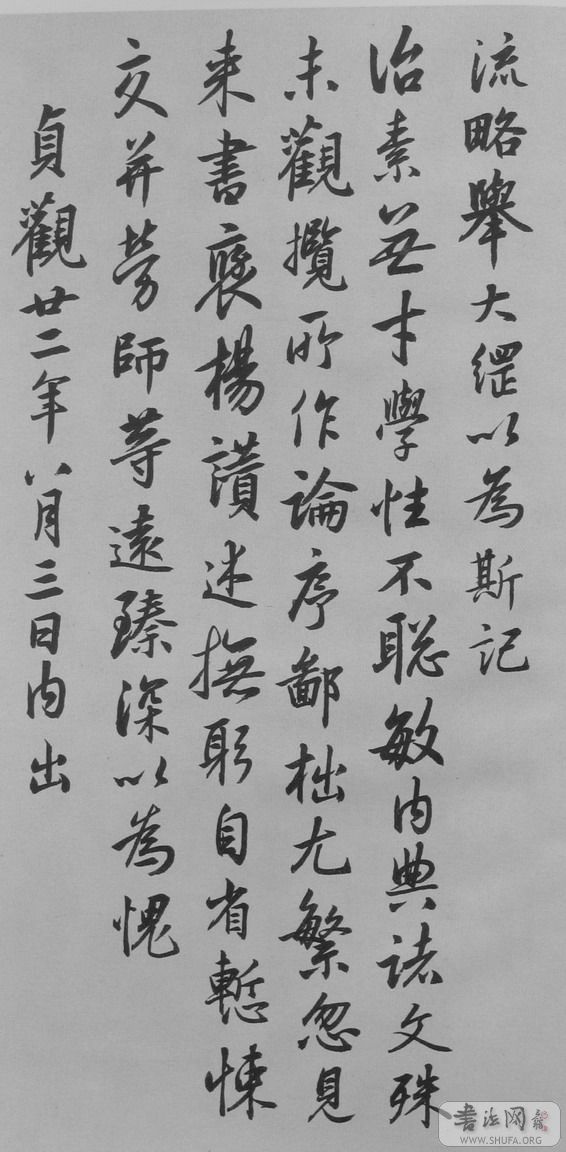 流略舉大綱以為斯記
治素無才學性不聰敏內典諸文殊
未觀攬所作論序鄙拙尤繁忽見
來書褒揚讃述撫躬自省慙悚
交并勞師等遠臻深以為愧
貞觀廿二年八月三日內出
書法网
WWW.SHUFA.ORG